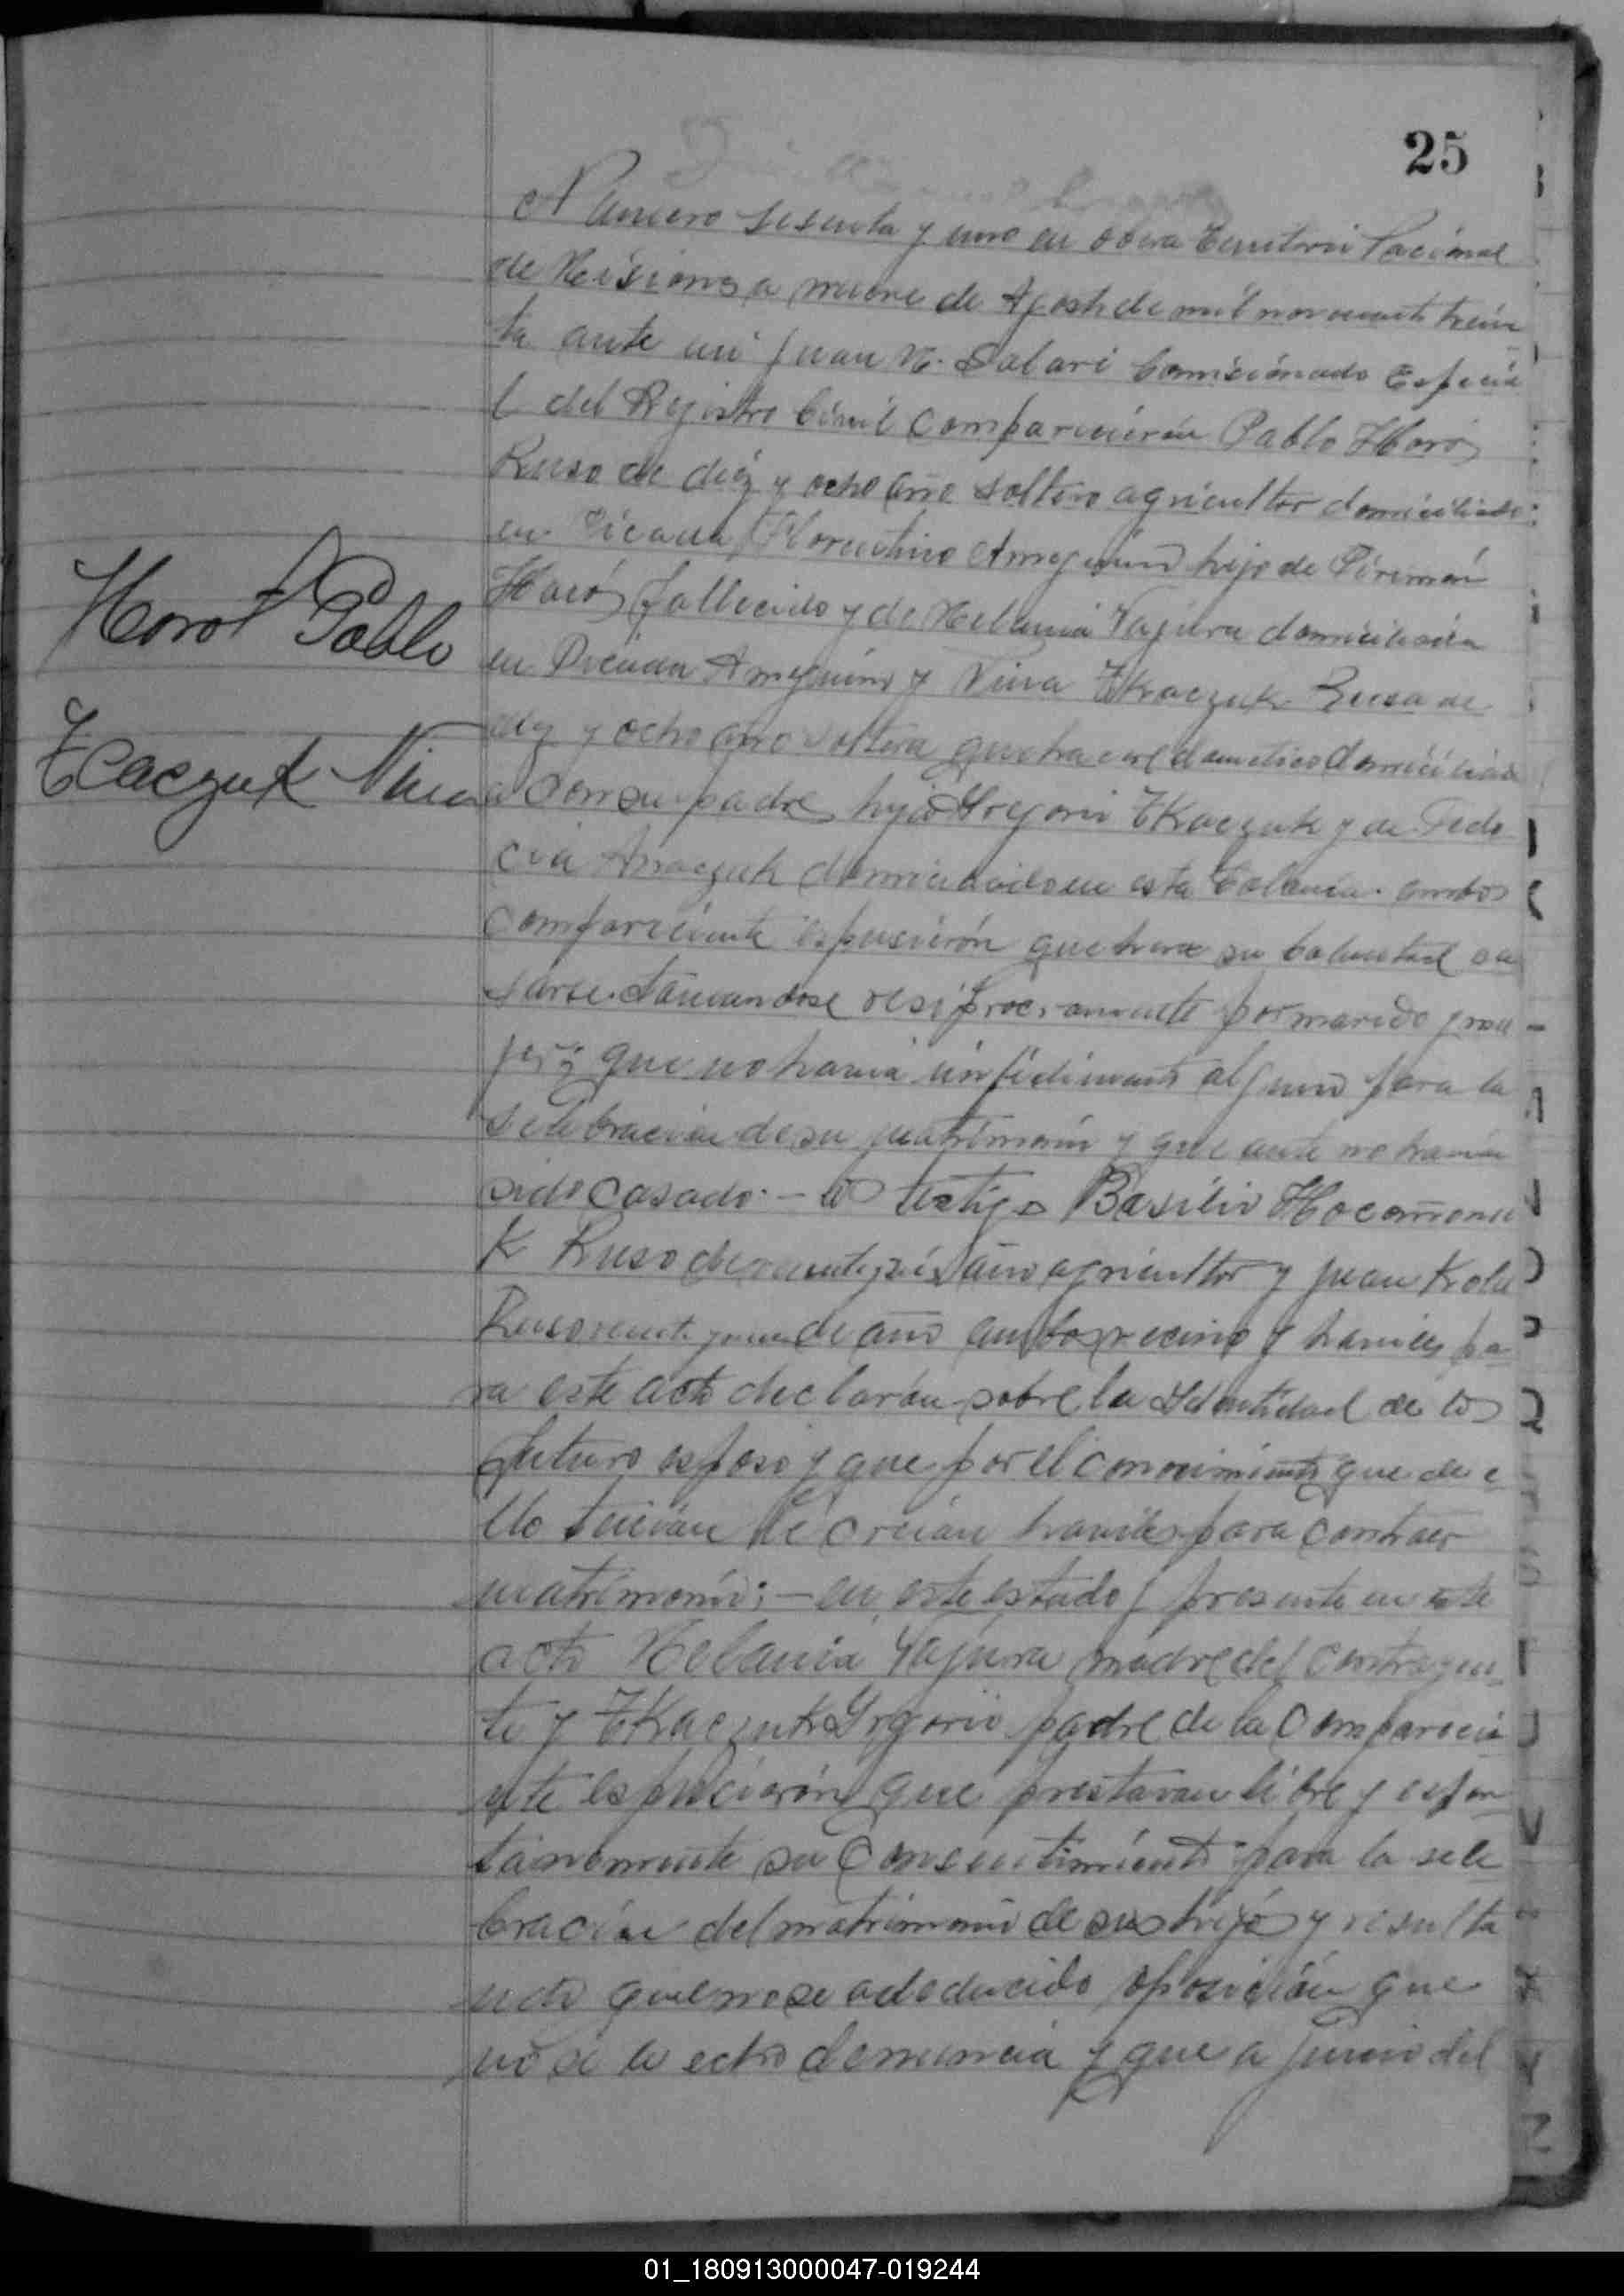 25
Numero sesenta y uno en obera Territorio Nacional
de Misiones a nueve de Agosto de mil novecento trein
ta ante mi Juan M. Salari Comicionado Especia
l del Rejistro Civil Comparicierón Pablo Horós
Ruso de diéz y ocho año soltero agricultor domiciliado
en Picada Florentino Ameguino hijo de
Horós fallecido y de Melania Vajura domiciliada
en Picada Ameguino y Nina Tkaczuk Rusa de
diez y ocho año soltera domiciliad
Horot Pablo
a con su padre hija Gregorio Tkaczuk y de Fedo
Tcaczuk Nina
cia domiciliado en esta Colonia ambos
compareciente espusierón que hera su boluntad ca
sarse. tomandose resiprocramente por marido y mu
jer; que no havia inpidimento alguno para la
selebración de su matrimonio y que ante no havian
sido casado. — los testigos Basilio
K Ruso de años agricultor y Juan
Ruso de año ambos vecino y haviles pa
ra este acto declarán sobre la Identidad de los
futuro esposo y que por el conosimiento que de e
llo tenian lé creian haviles para contraer
matrimonio; — en este estado y presente en este
acto Melania Vajura madre del contrayen
te y Tkaczuk Grgorio padre de la Comparecie
nte espucierón que prestavan libre y espon
taniamente su Consentimiento para la sele
bración del matrimonio de sus hijos y resulta
ndo que no se a deducido oposición que
no se a echo denuncia y que a juicio del
01_180913000047-019244